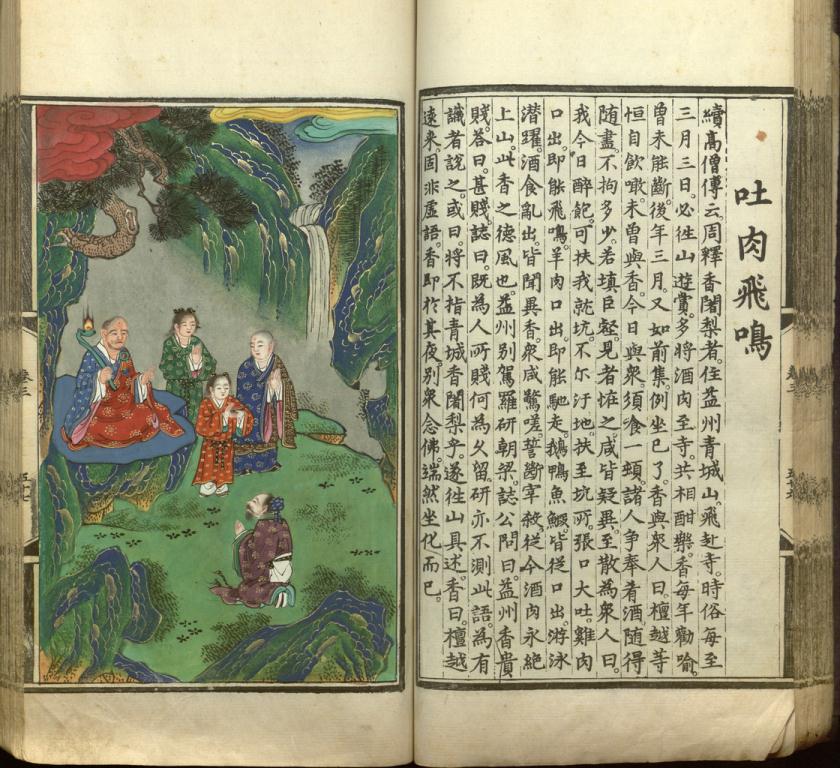 吐肉飛鳴
續高僧傳云。周釋香闍梨者。住益州青城山。飛赴寺。時俗每至
三月三日。必往山遊賞。多將酒肉至寺。共相酣樂。香每年勸喻。
曾未能斷。後年三月。又如前集。例坐已了。香與衆人曰。檀越等
恒自飲噉。未曾與香。今日與衆。須飡一頓。諸人争奉肴酒。隨得
隨盡。不拘多少。若填巨壑。見者恠之。咸皆疑異。至散為衆人曰。
我今日醉飽。可扶我就坑。不尓汙地。扶至坑所。張口大吐。雞肉
口出。即能飛鳴。羊肉口出。即能馳走。鵝鴨魚鰕。皆從口出。游泳
潜躍。酒食亂出。皆聞異香。衆咸驚嗟。誓斷宰殺。從今酒肉永絶
上山。此香之德風也。益州別駕羅研朝梁。誌公問曰。益州香貴
賤。荅曰。甚賤。誌曰。既為人所賤。何為久留。研亦不測此語。為有
識者說之。或曰。將不指青城香闍梨乎。遂往山具述。香曰。檀越
遠来。固非虛語。香即於其夜。別衆念佛。端然坐化而已。
卷三